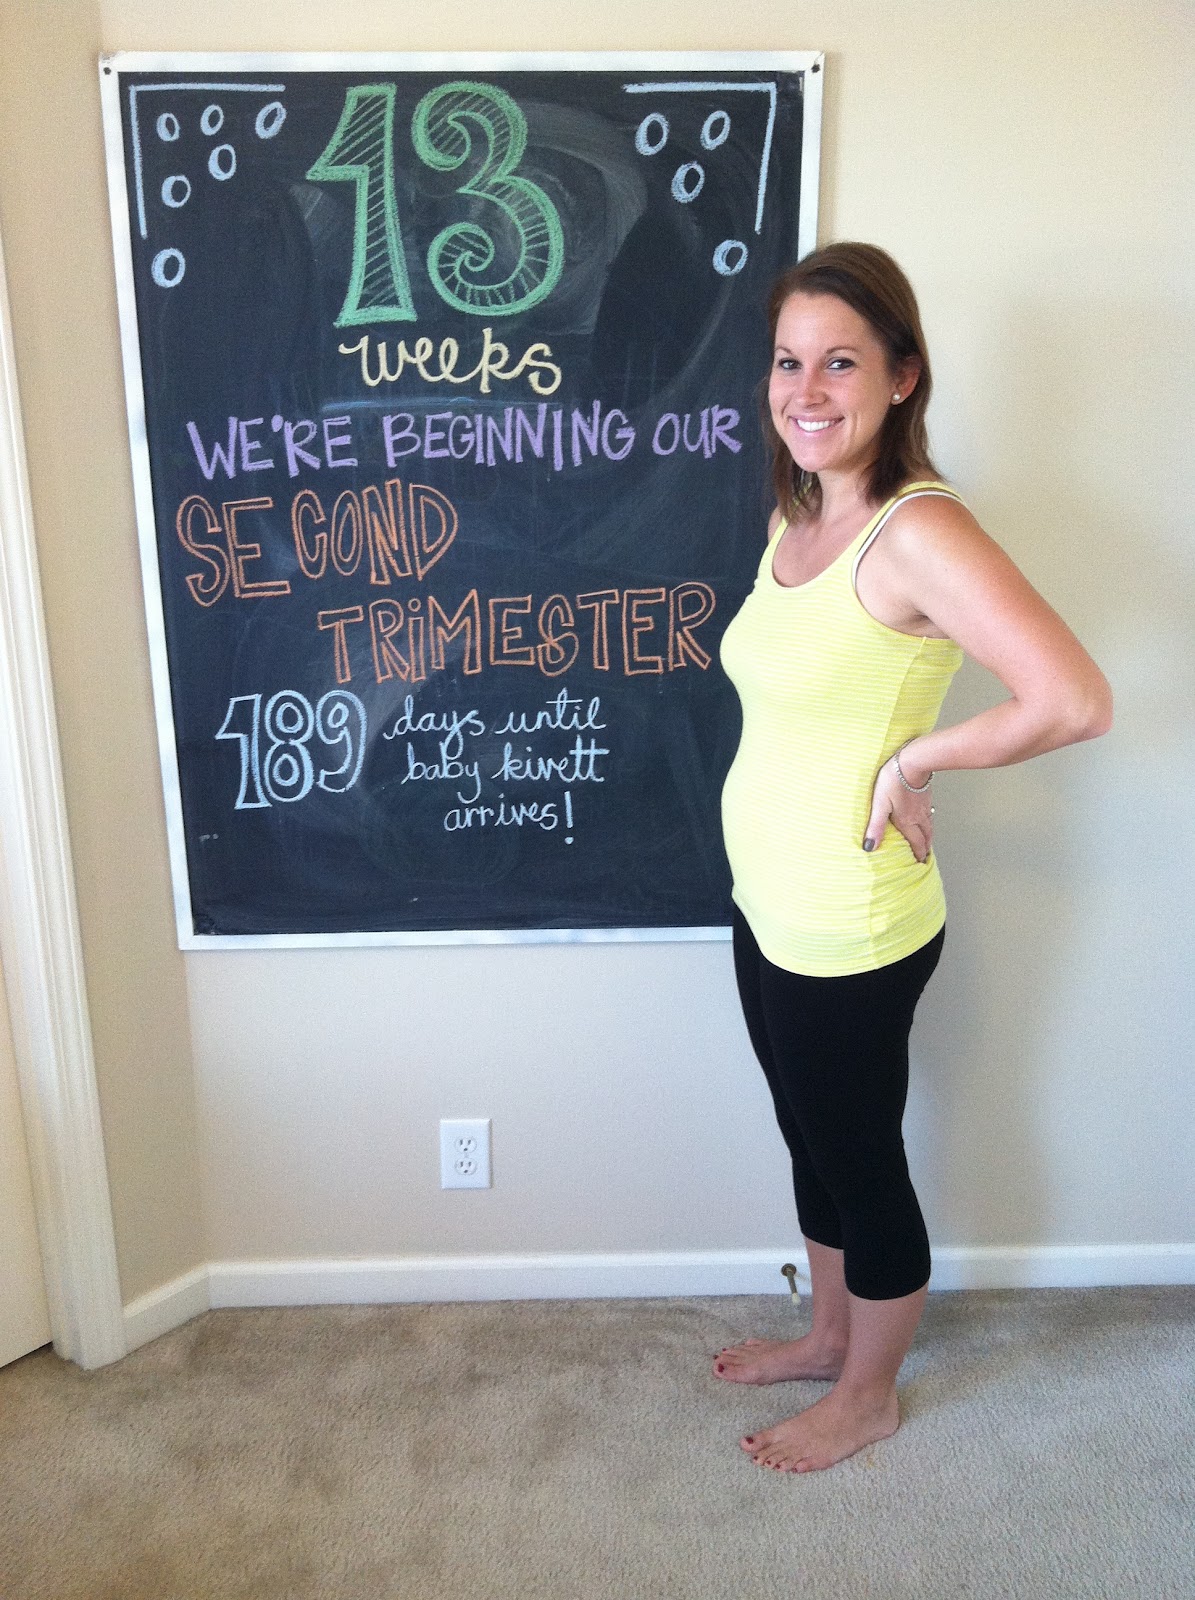 13
weeks
WE'RE BEGINNING OUR
SECOND
TRiMESTER
189 days until
baby kivett
arrives!